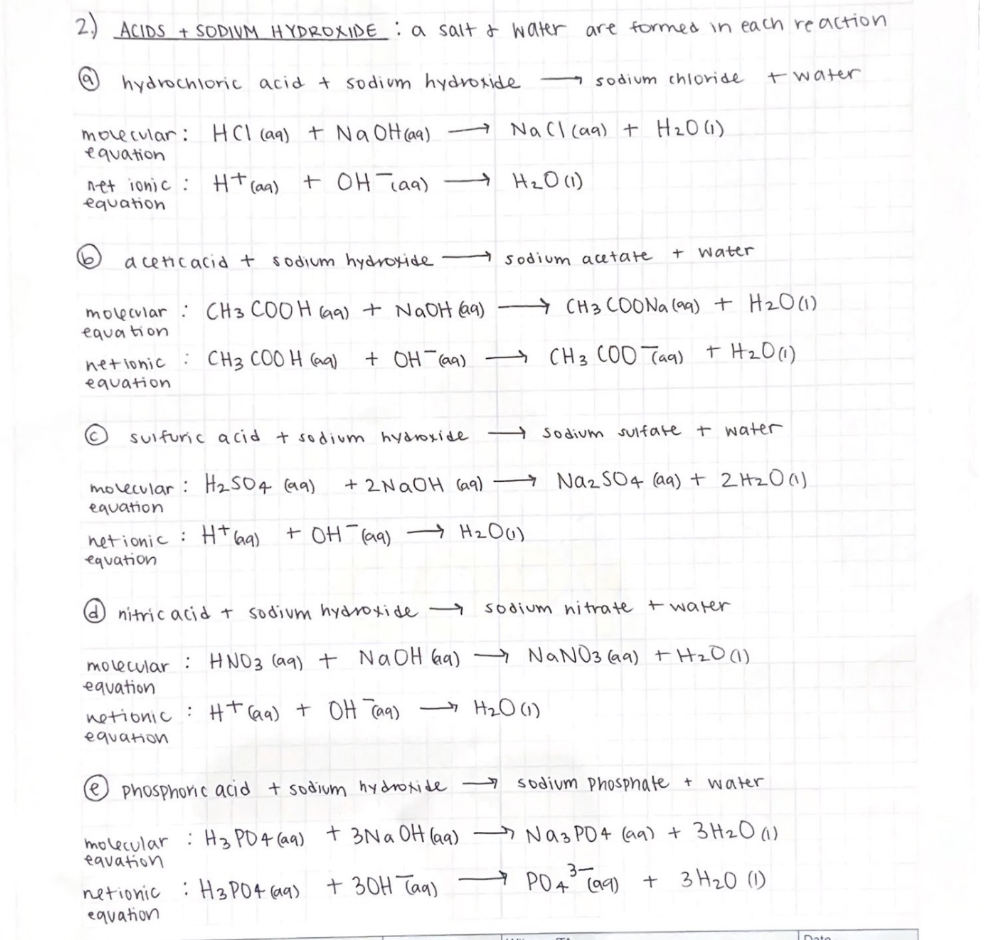 2.) ACIDS + SODIUM HYDROXIDE : a salt & water are formed in each reaction
ⓐ hydrochloric acid + sodium hydroxide ⟶ sodium chloride + water
molecular : HCl (aq) + NaOH (aq) ⟶ NaCl (aq) + H2O (l)
equation
net ionic : H+ (aq) + OH- (aq) ⟶ H2O (l)
equation
ⓑ acetic acid + sodium hydroxide ⟶ sodium acetate + water
molecular : CH3COOH (aq) + NaOH (aq) ⟶ CH3COONa (aq) + H2O (l)
equation
net ionic : CH3COOH (aq) + OH- (aq) ⟶ CH3COO- (aq) + H2O (l)
equation
ⓒ sulfuric acid + sodium hydroxide ⟶ sodium sulfate + water
molecular : H2SO4 (aq) + 2NaOH (aq) ⟶ Na2SO4 (aq) + 2H2O (l)
equation
net ionic : H+ (aq) + OH- (aq) ⟶ H2O (l)
equation
ⓓ nitric acid + sodium hydroxide ⟶ sodium nitrate + water
molecular : HNO3 (aq) + NaOH (aq) ⟶ NaNO3 (aq) + H2O (l)
equation
net ionic : H+ (aq) + OH- (aq) ⟶ H2O (l)
equation
ⓔ phosphoric acid + sodium hydroxide ⟶ sodium phosphate + water
molecular : H3PO4 (aq) + 3NaOH (aq) ⟶ Na3PO4 (aq) + 3H2O (l)
equation
net ionic : H3PO4 (aq) + 3OH- (aq) ⟶ PO4 3- (aq) + 3H2O (l)
equation